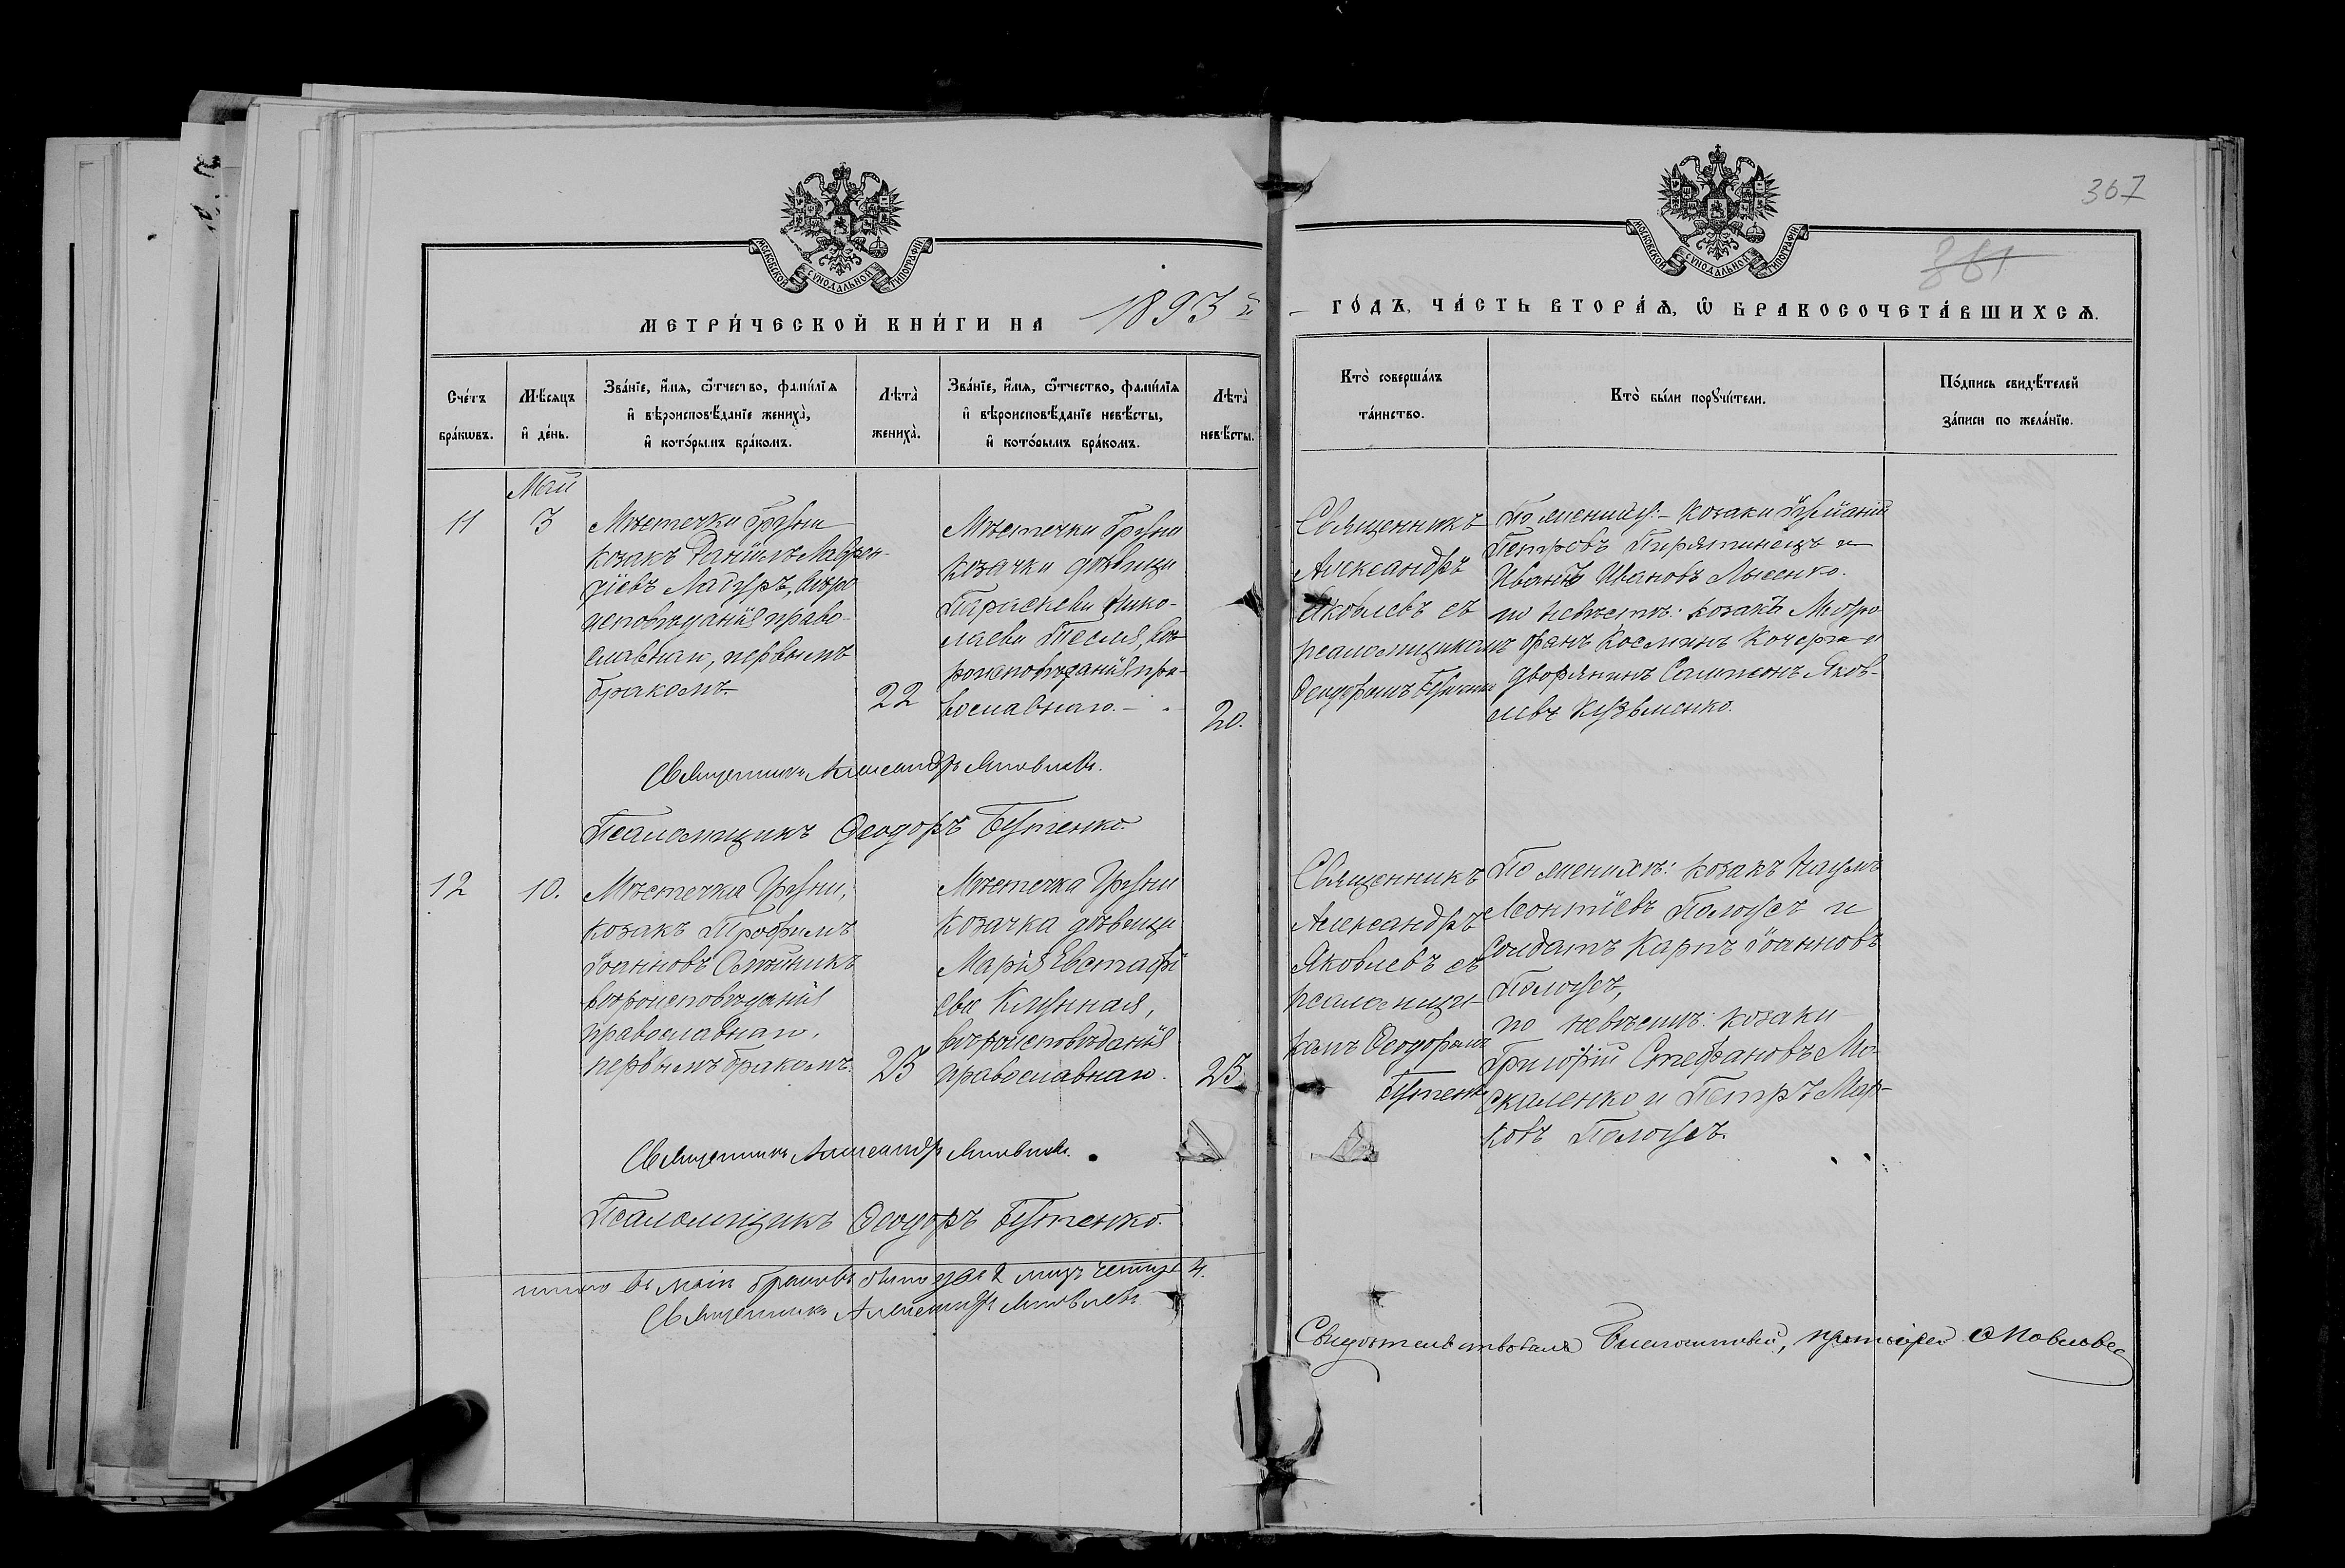 367
381
МОСКОВСКОЙ СѴНОДАЛЬНОЙ ТИПОГРАФІИ
МОСКОВСКОЙ СѴНОДАЛЬНОЙ ТИПОГРАФІИ
МЕТРИ́ЧЕСКОЙ КНИ́ГИ НА 1893 й
ГО́ДЪ, ЧА́СТЬ ВТОРА́Ѧ, Ѡ҆ БРАКОСОЧЕТА́ВШИХСѦ.
Сче́тъ бра́кѡвъ.
Мѣ́сяцъ и҆ де́нь.
Зва́нїе, и҆́мя, ѻ҆́тчество, фами́лїя и҆ вѣроисповѣ́данїе жениха̀, и҆ кото́рымъ бра́комъ.
Лѣта̀ жениха̀.
Зва́нїе, и҆́мя, ѻ҆́тчество, фами́лїя и҆ вѣроисповѣ́данїе невѣ́сты, и҆ кото́рымъ бра́комъ.
Лѣта̀ невѣ́сты.
Кто̀ соверша́лъ та́инство.
Кто̀ бы́ли порꙋчи́тели.
По́дпись свидѣ́телей за́писи по жела́нїю.
Май
11
3
Мѣстечка Груни
козакъ Даніилъ Мавра-
діевъ Ладуръ, вѣро
исповѣданія право-
славнаго, первымъ
бракомъ
22
Мѣстечка Груни
козачка дѣвица
Параскева Нико-
лаева Тесля, вѣ-
роисповѣданія пра-
вославнаго.
20.
Священникъ
Александръ
Яковлевъ съ
псаломщикомъ
Ѳеодоромъ Бутенко
По жениху: козаки
Петровъ Пирятинецъ и
Иванъ Ивановъ Лысенко.
по невѣстѣ: козакъ Митро
фанъ Косминъ Кочерга и
дворянинъ Сампсонъ Яков-
левъ Кузьменко.
Священникъ Александръ Яковлевъ.
Псаломщикъ Ѳеодоръ Бутенко.
12
10.
Мѣстечка Груни,
козакъ Трофимъ
Іоанновъ Олѣйникъ
вѣроисповѣданія
православнаго,
первымъ бракомъ.
25
Мѣстечка Груни
козачка дѣвица
Марія Евстафі
ева Клунная,
вѣроисповѣданія
православнаго.
25
Священникъ
Александръ
Яковлевъ съ
псаломщи-
комъ Ѳеодоромъ
Бутенко
По женихѣ: козакъ Наумъ
Леонтіевъ Полоусъ и
солдатъ Карпъ Іоанновъ
Полоусъ,
по невѣстѣ: козаки
Григорій Стефановъ Мо-
скаленко и Петръ Мар-
ковъ Полоусъ.
Священникъ Александръ Яковлевъ.
Псаломщикъ Ѳеодоръ Бутенко.
итого въ маѣ браковъ было два 2 лицъ четыре 4.
Священникъ Александръ Яковлевъ.
Свидѣтельствовалъ Благочинный, протоіерей